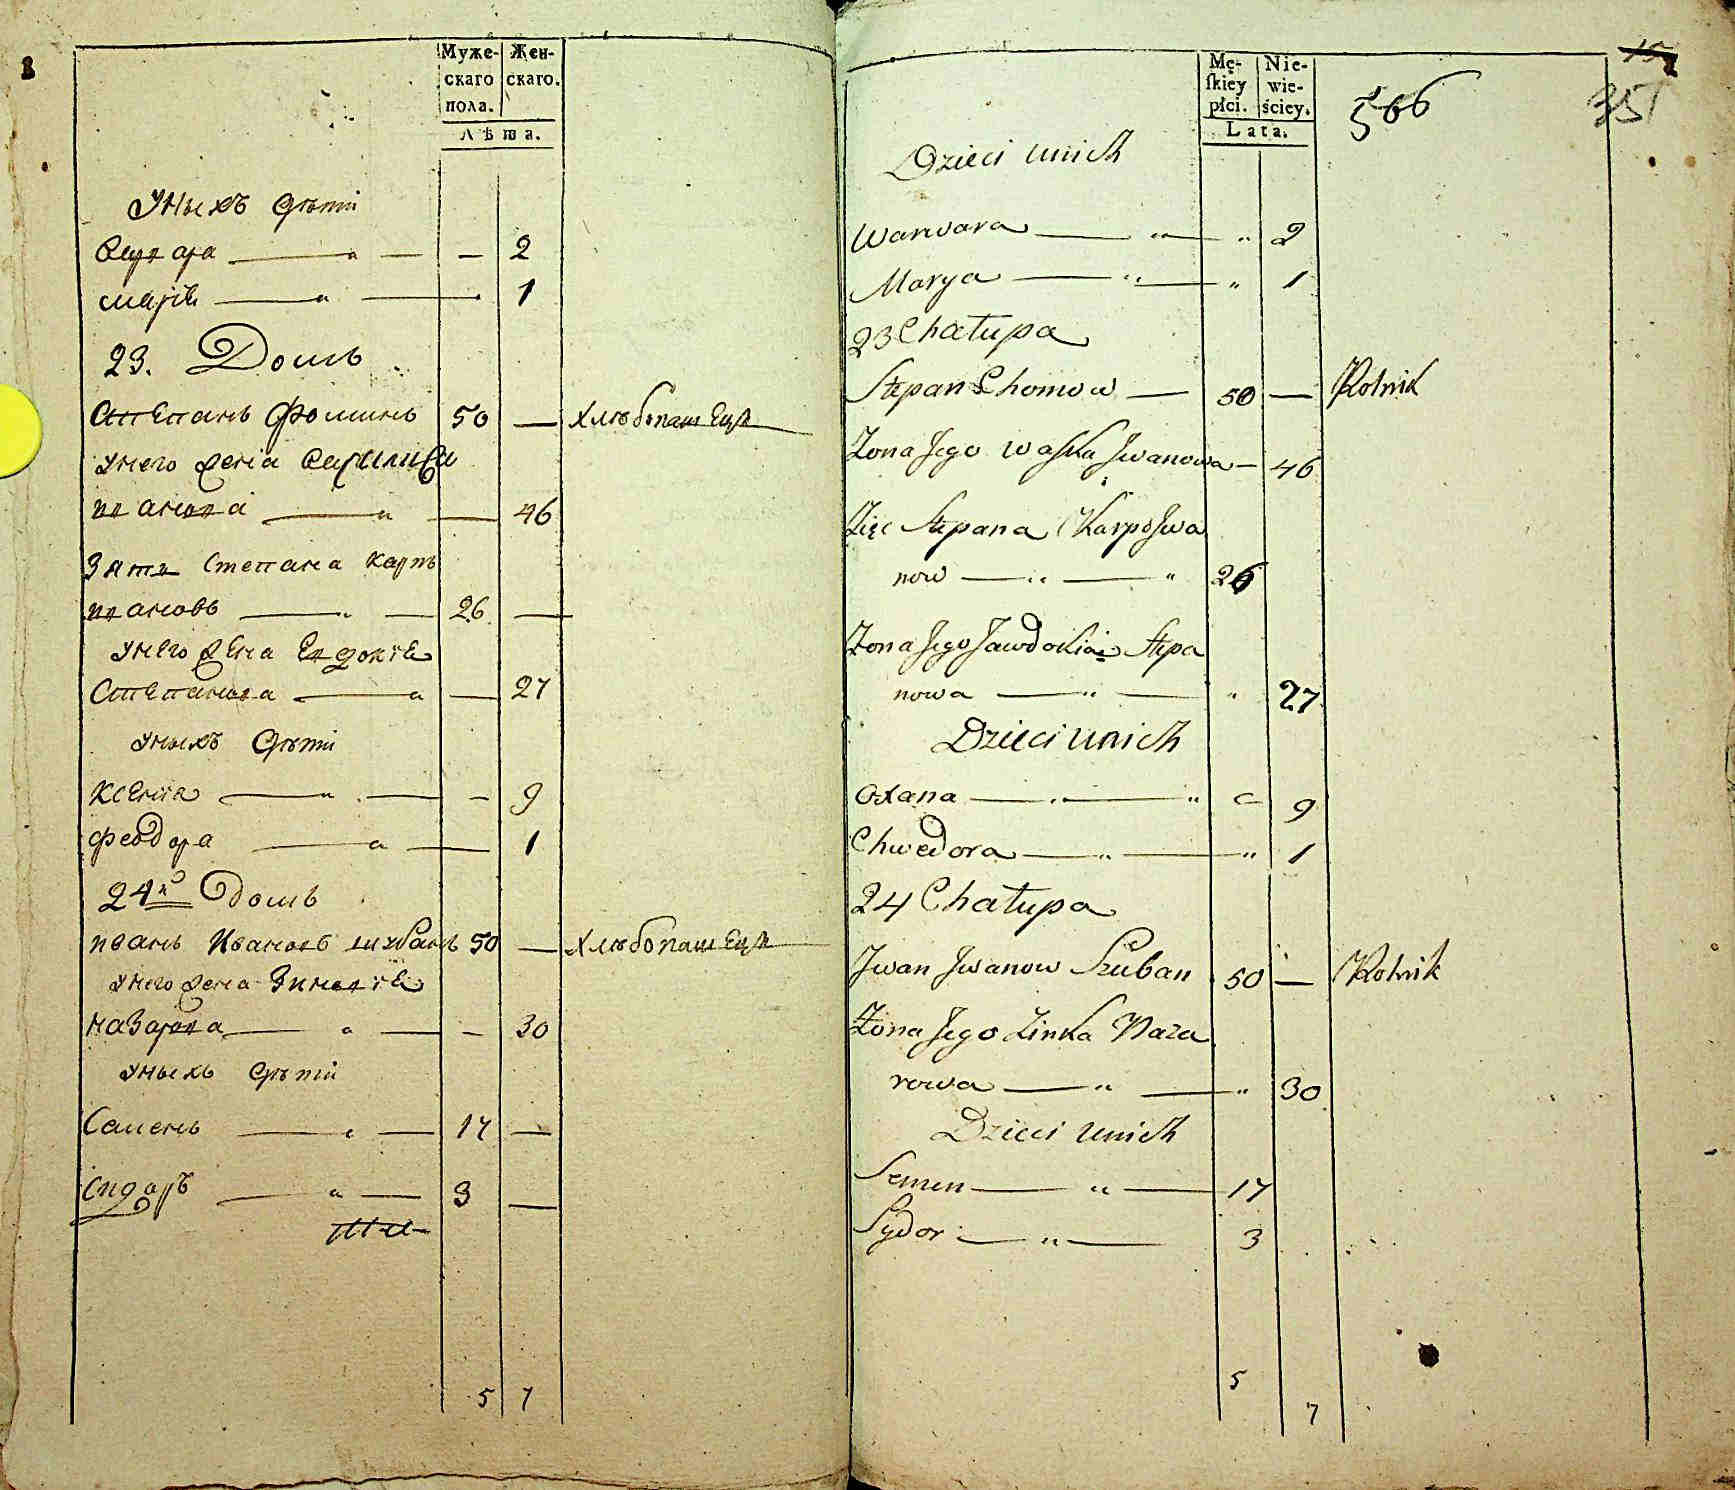 Муже-
скаго
пола.
Жен-
скаго.
Лѣта.
У ныхъ дѣти
— 2
Марiя — 1
23. Домъ
Степанъ Фоминъ 50 — хлѣбопашецъ
У него жена Василиса
Иванова — 46
Зять Степана Карпъ
Ивановъ — 26 —
У него жена Евдокiя
Степанова — 27
У ныхъ дѣти
Ксенiя — 9
Феодора — 1
24й Домъ
Иванъ Ивановъ Шубанъ 50 — хлѣбопашецъ
У него жена Зиновiя
Назарова — 30
У ныхъ дѣти
Семенъ — 17 —
Сидоръ — 3 —
5 7
Mę-
ſkiey
płci.
Nie-
wie-
ściey.
Lata.
566
351
Dzieci unich
Warwara — " — " 2
Marya — " — " 1
23 Chałupa
Stepan Chomow — 50 — Rolnik
Żona Jego Waska Jwanowa — 46
Zięc Stepana Karp Jwa
now — " — " 26
Żona Jego Jawdokia Stepa
nowa — " — " 27
Dzieci unich
Oxana — " 9
Chwedora — " — " 1
24 Chałupa
Jwan Jwanow Szuban 50 — Rolnik
Żona Jego Zinka Naza
rowa — " — " 30
Dzieci unich
Semen — " — 17
Sydor — " — 3
5
7